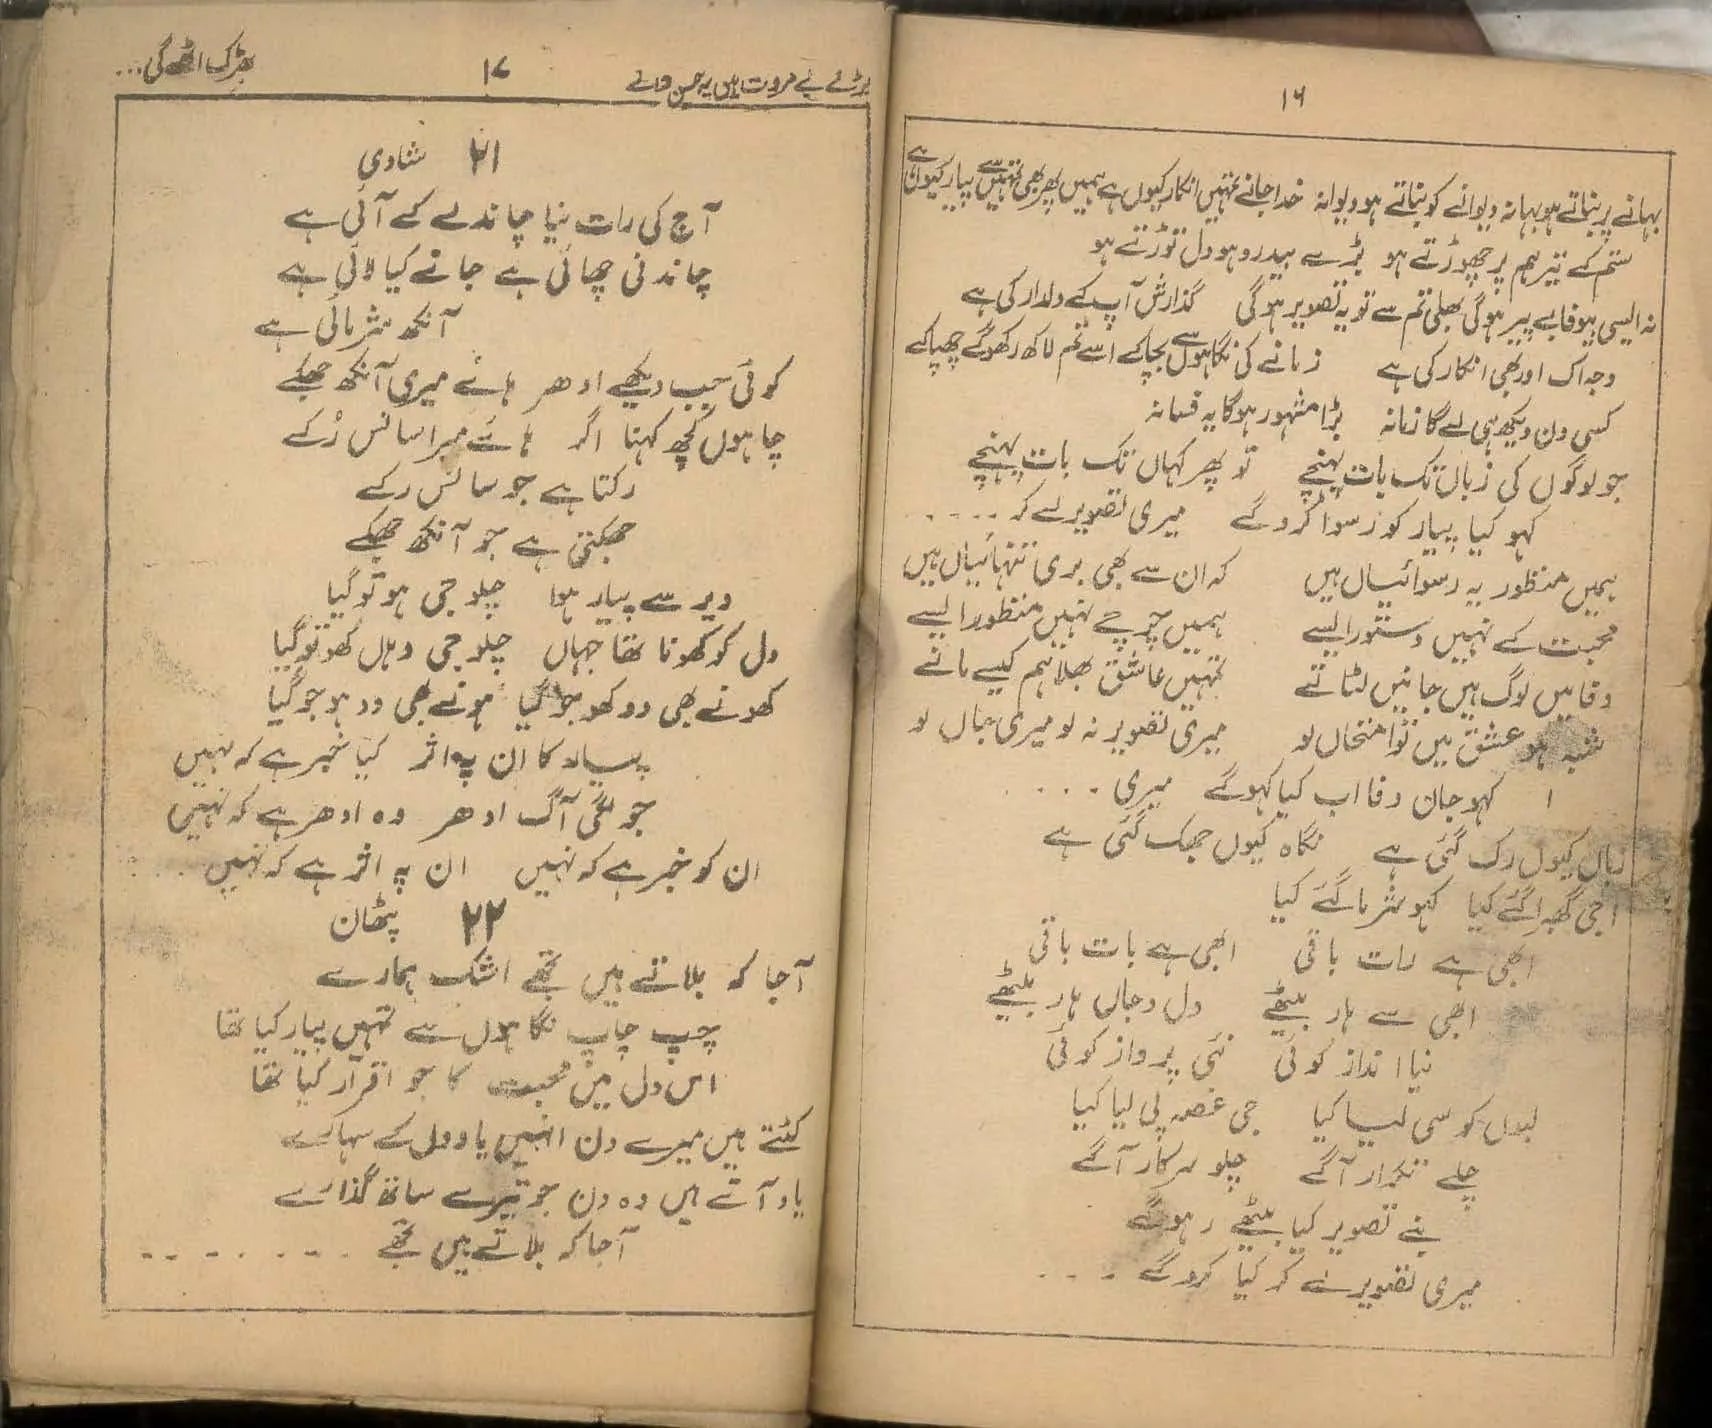 ۱۶
بہانے پر بناتے ہو بہانہ دیوانے کو بناتے ہو دیوانہ خدا جانے تمہیں انکار کیوں ہے ہمیں پھر بھی تمہیں سے پیار کیوں ہے
ستم کے تیر ہم پر چھوڑتے ہو بڑے بیدرد ہو دل توڑتے ہو
نہ ایسی بیوفا بے پیر ہوگی بھلی تم سے تو یہ تصویر ہوگی گذارش آپ کے دلدار کی ہے
وجہ اک اور بھی انکار کی ہے زمانے کی نگاہوں سے بچا کے اسے تم لاکھ رکھو گے چھپا کے
کسی دن دیکھ ہی لے گا زمانہ بڑا مشہور ہوگا یہ فسانہ
جو لوگوں کی زباں تک بات پہنچے تو پھر کہاں تک بات پہنچے
کہو کیا پیار کو رسوا کروگے میری تصویر لے کر ....
ہمیں منظور یہ رسوائیاں ہیں کہ ان سے بھی بری تنہائیاں ہیں
محبت کے نہیں دستور ایسے ہمیں چرچے نہیں منظور ایسے
وفا میں لوگ ہیں جانیں لٹاتے تمہیں عاشق بھلا ہم کیسے مانے
شبہ ہو عشق میں تو امتحاں لو میری تصویر نہ لو میری جاں لو
کہو جان وفا اب کیا کہوگے میری ....
زباں کیوں رک گئی ہے نگاہ کیوں جھک گئی ہے
اجی گھبرا گئے کیا کہو شرما گئے کیا
ابھی ہے رات باقی ابھی ہے بات باقی
ابھی سے ہار بیٹھے دل و جاں ہار بیٹھے
نیا انداز کوئی نئی پرواز کوئی
لبوں کو سی لیا کیا جی غصہ پی لیا کیا
چلے تکرار آگے چلو سرکار آگے
بنے تصویر کیا بیٹھے رہو گے
میری تصویر لے کر کیا کروگے ...
بڑے بے مروت ہیں یہ حسن والے ۱۷ بھڑک اٹھے گی...
۲۱ شادی
آج کی رات نیا چاند لے کے آئی ہے
چاندنی چھائی ہے جانے کیا لائی ہے
آنکھ شرمائی ہے
کوئی جب دیکھے ادھر ہائے میری آنکھ جھکے
چاہوں کچھ کہنا اگر ہائے میرا سانس رُکے
رکتا ہے جو سانس رکے
جھکتی ہے جو آنکھ جھکے
دیر سے پیار ہوا چلو جی ہو تو گیا
دل کو کھونا تھا جہاں چلو جی وہاں کھو تو گیا
کھونے بھی دو کھو جو گیا ہونے بھی دو ہو جو گیا
پیار کا ان پہ اثر کیا خبر ہے کہ نہیں
جو لگی آگ ادھر وہ ادھر ہے کہ نہیں
ان کو خبر ہے کہ نہیں ان پہ اثر ہے کہ نہیں ....
۲۲ پٹھان
آجا کہ بلاتے ہیں تجھے اشک ہمارے
چپ چاپ نگاہوں سے تمہیں پیار کیا تھا
اس دل میں محبت کا جو اقرار کیا تھا
کٹتے ہیں میرے دن انہیں یادوں کے سہارے
یاد آتے ہیں وہ دن جو تیرے ساتھ گذارے
آجا کہ بلاتے ہیں تجھے .......